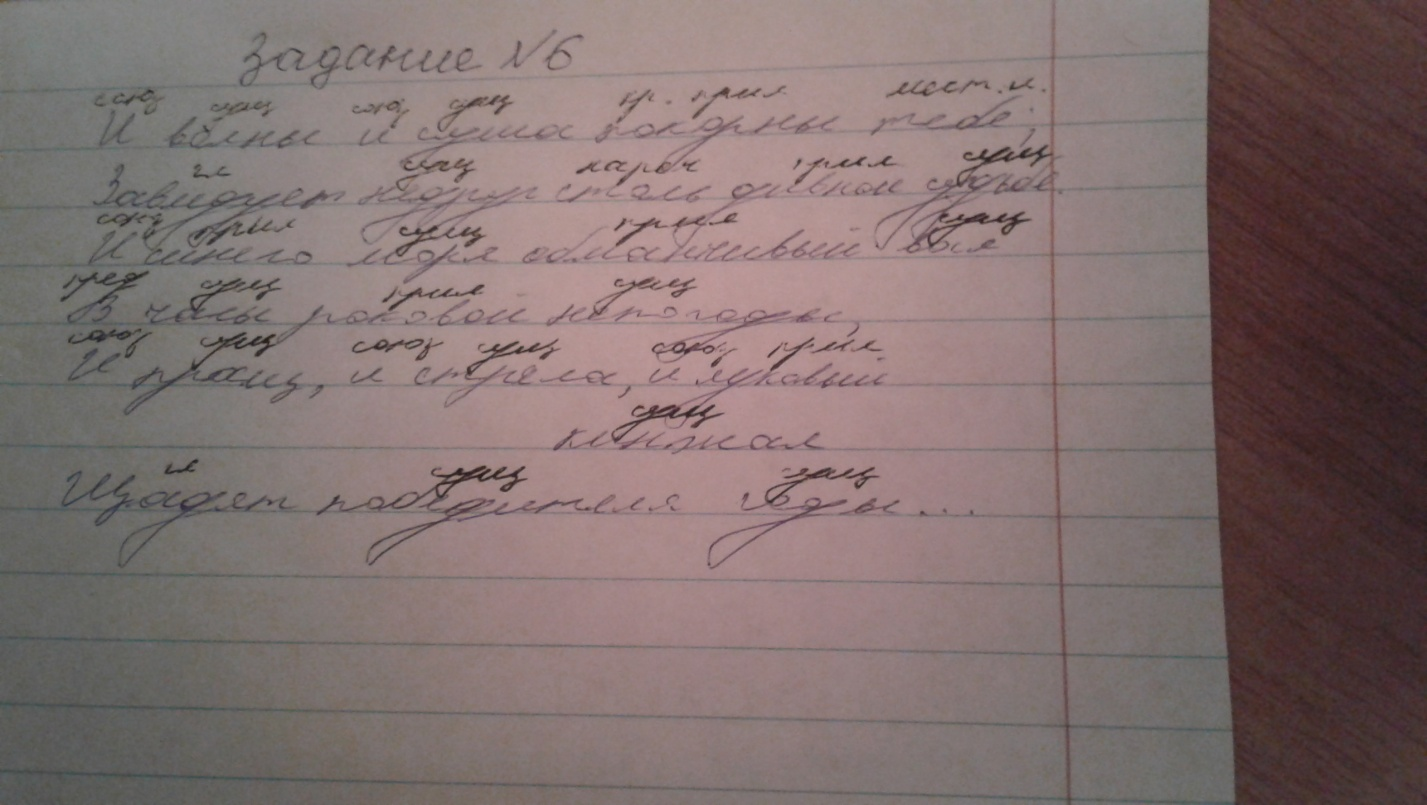 Задание №6
союз сущ союз сущ кр. прил мест. и.
И волны и суша покорны тебе;
гл сущ нареч прил сущ
Завидует недруг столь дивной судьбе.
союз прил сущ прил сущ
И синего моря обманчивый вал
пред сущ прил сущ
В часы роковой непогоды,
союз сущ союз сущ союз прил
И пращ, и стрела, и лукавый
сущ
кинжал
гл сущ сущ
Щадят победителя годы...